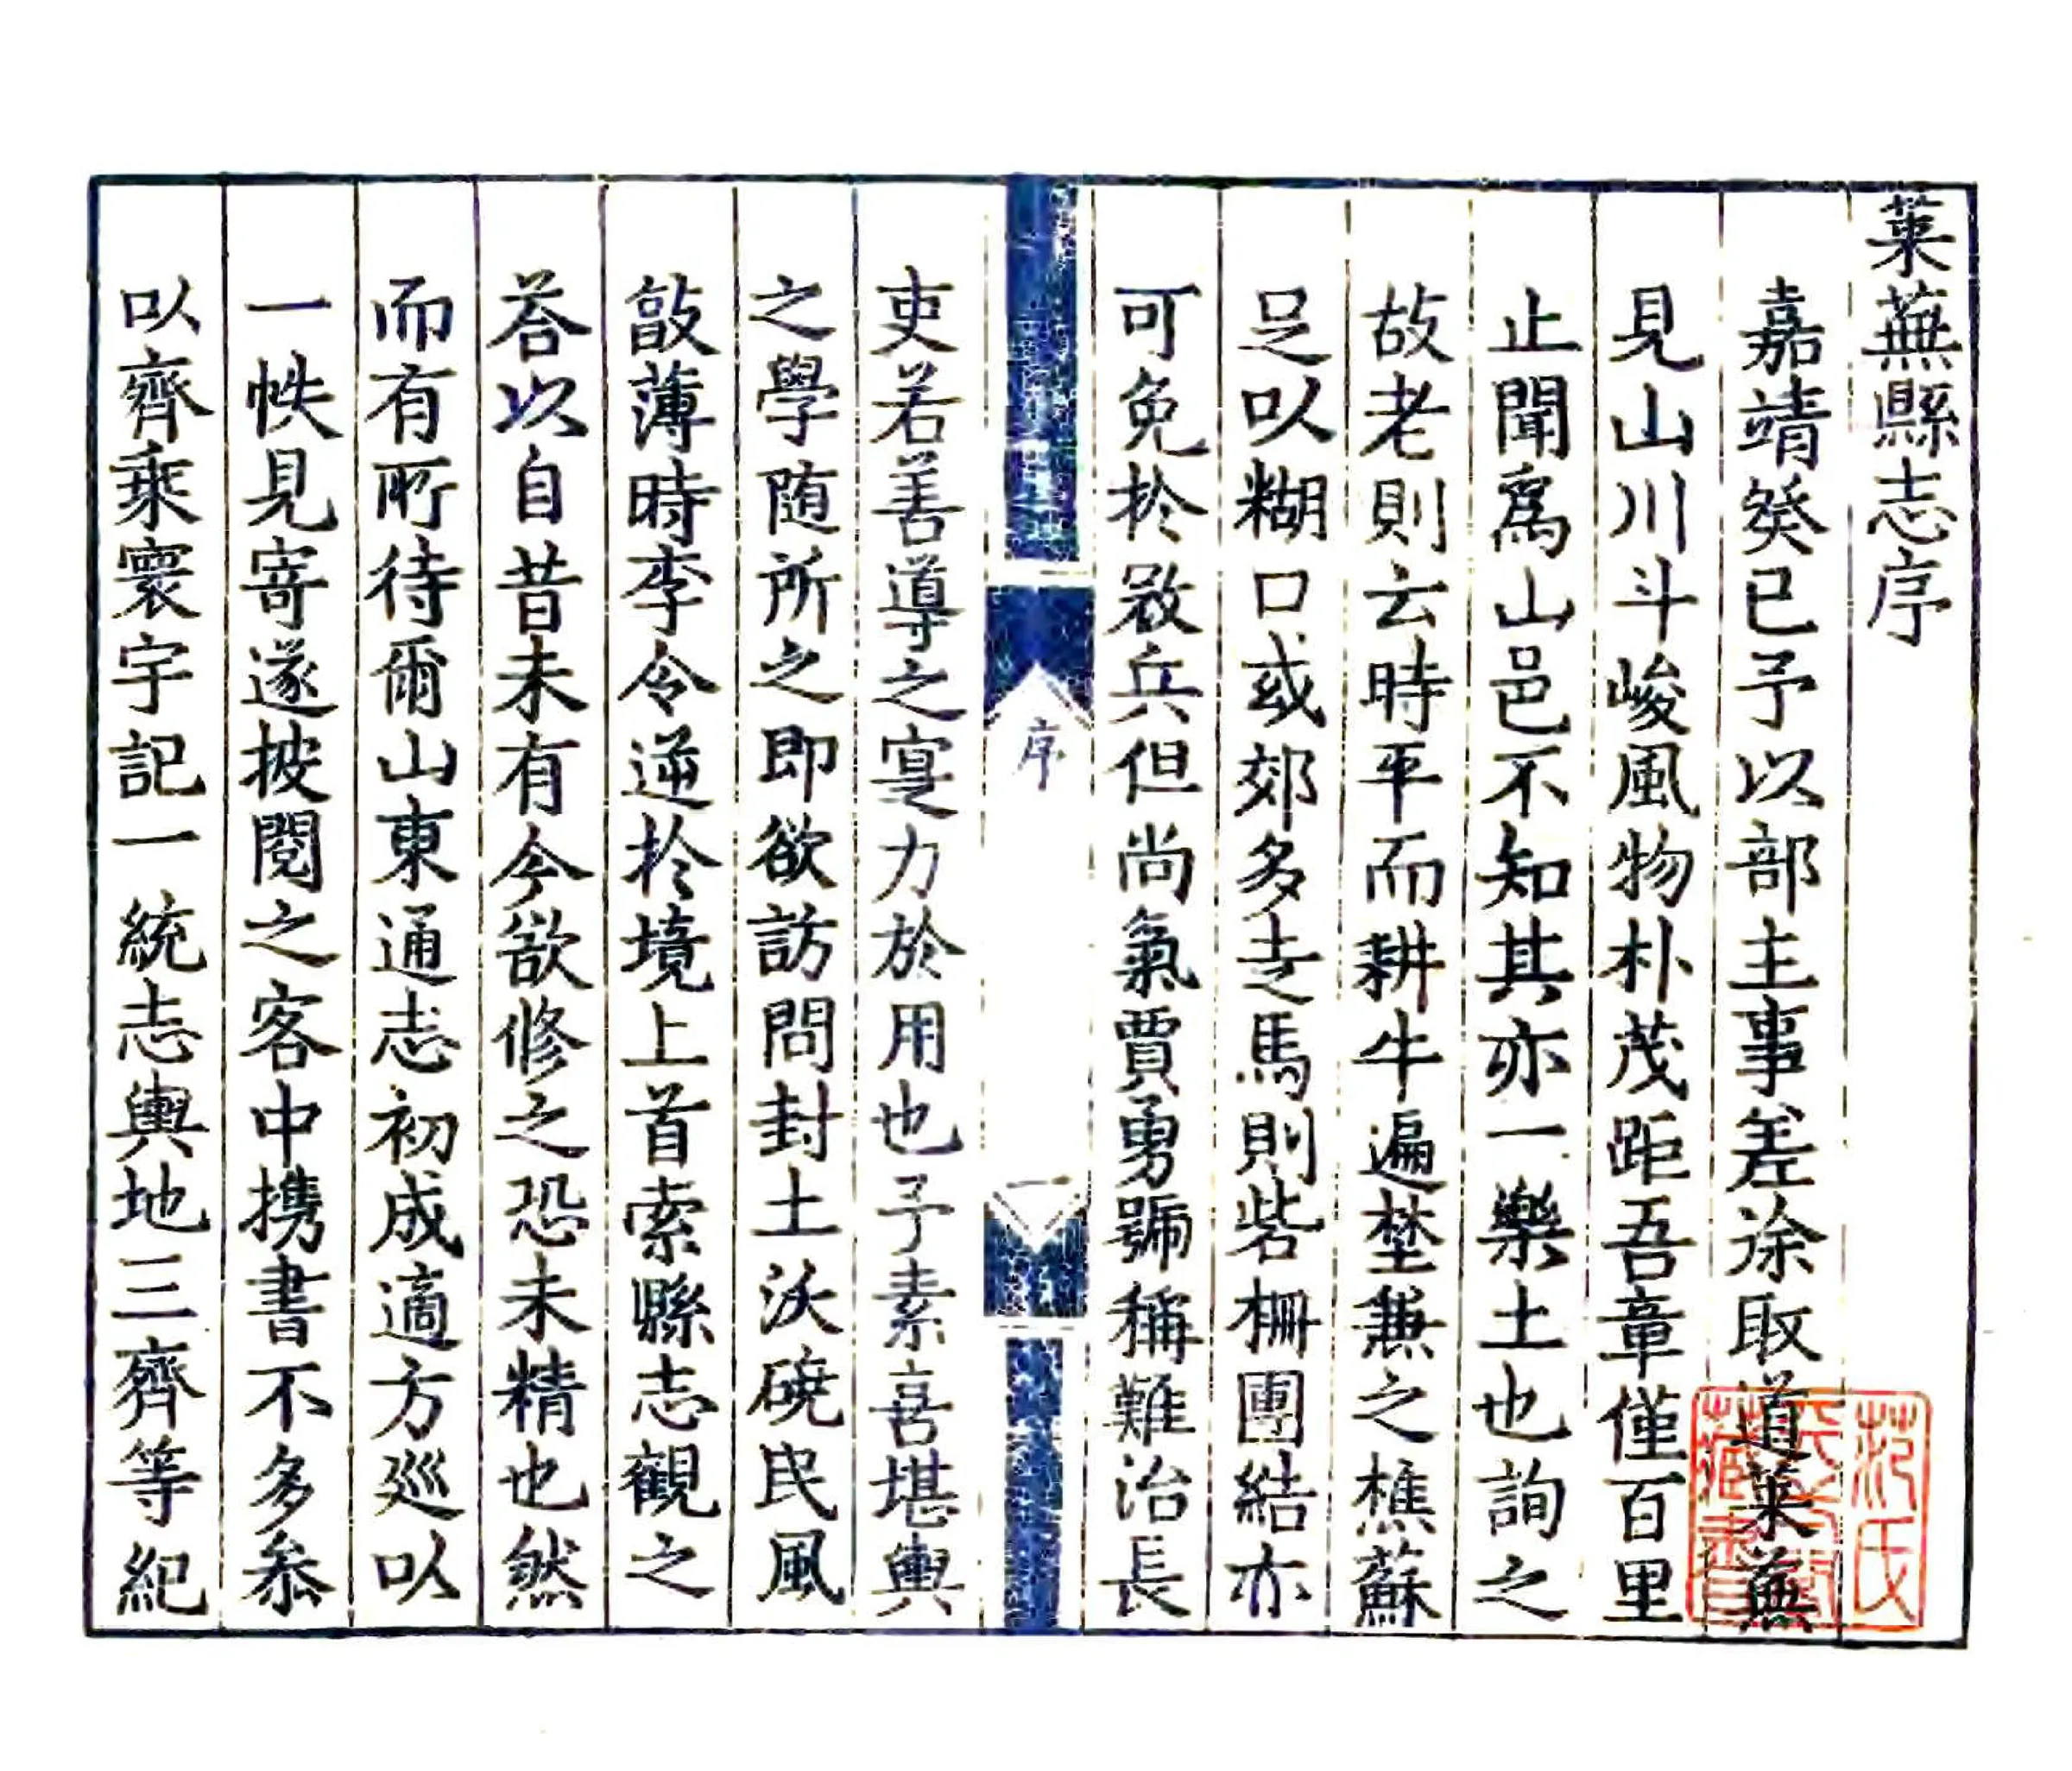 萊蕪縣志序
嘉靖癸巳予以部主事差徐取道萊蕪
見山川斗峻風物朴茂距吾章僅百里
止聞爲山邑不知其亦一樂土也詢之
故老則云時平而耕牛遍埜兼之樵蘇
足以糊口或郊多走馬則砦柵團結亦
可免於敓兵但尚氣賈勇號稱難治長
序
一
吏若善導之寔力於用也予素喜堪輿
之學随所之即欲訪問封土沃磽民風
敲薄時李令逆於境上首索縣志觀之
荅以自昔未有今欲修之恐未精也然
而有所待爾山東通志初成適方巡以
一帙見寄遂披閱之客中携書不多叅
以齊乘寰宇記一統志輿地三齊等紀
范氏
藏書